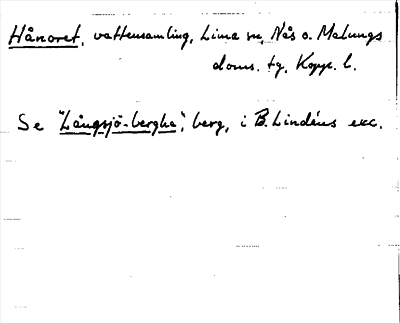 Hånoret, vattensamling, Lima sn, Nås o. Malungs
doms. tg, Kopp. l.
Se "Långsjö-bergha", berg, i B. Lindéns exc.